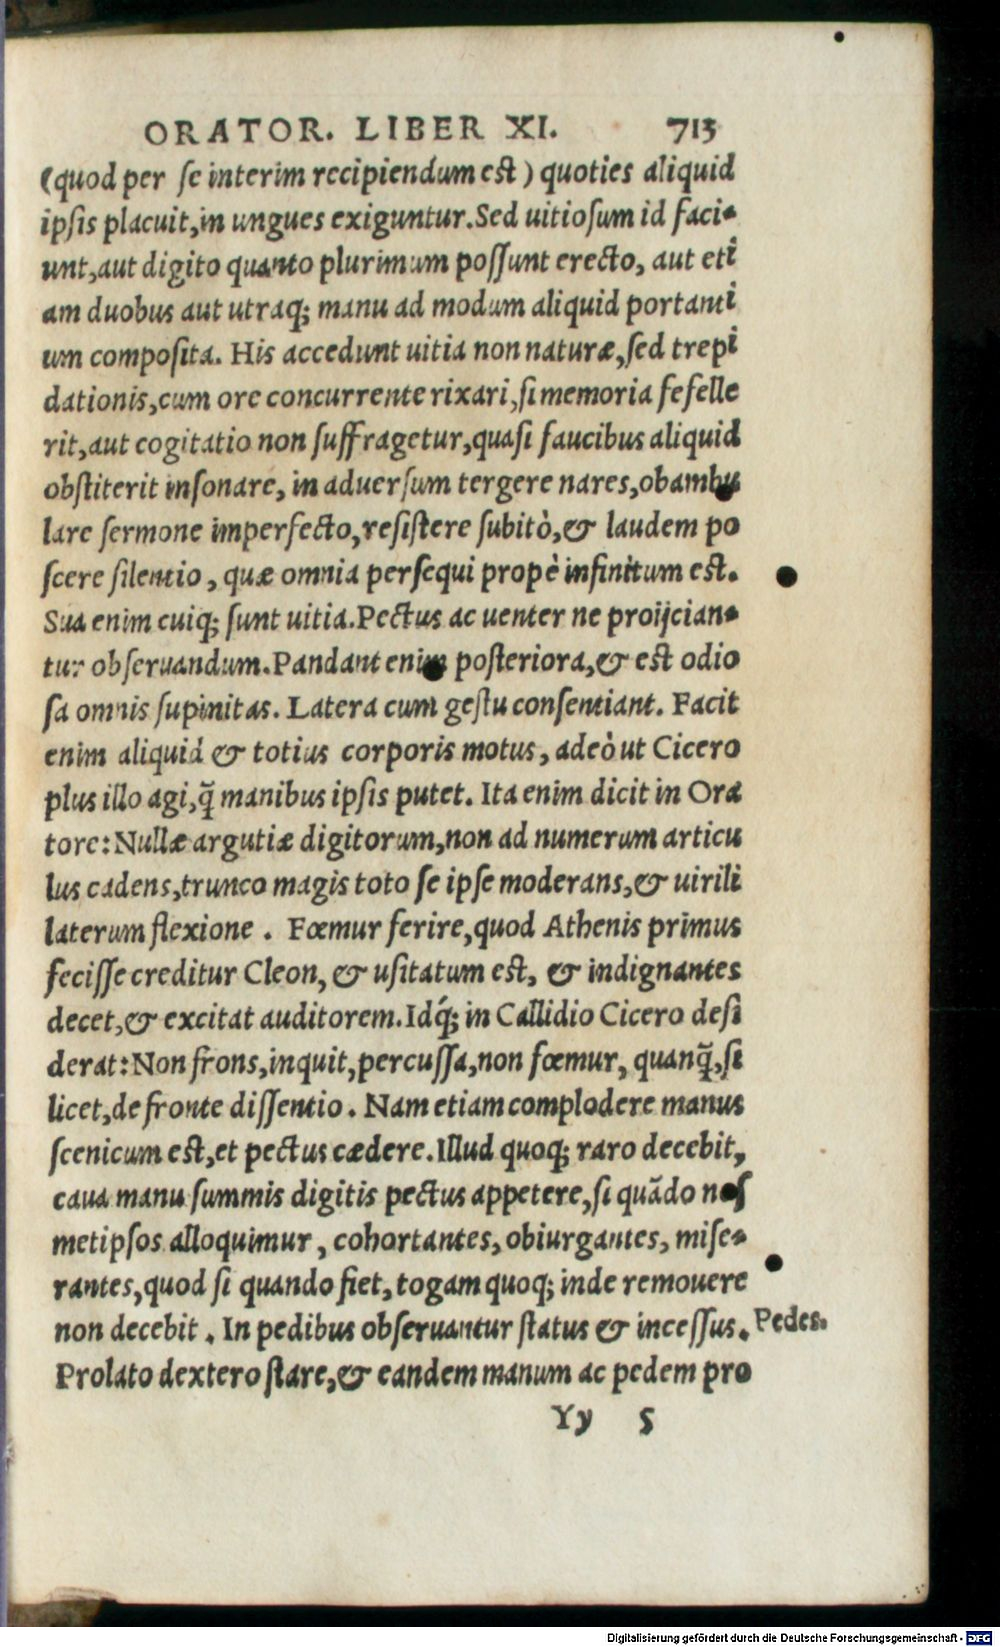 ORATOR. LIBER XI. 713
(quod per se interim recipiendum est) quoties aliquid
ipsis placuit,in ungues exiguntur.Sed uitiosum id faci-
unt,aut digito quanto plurimum possunt erecto, aut eti
am duobus aut utraq; manu ad modum aliquid portanti
um composita. His accedunt uitia non naturæ,sed trepi
dationis,cum ore concurrente rixari,si memoria fefelle
rit,aut cogitatio non suffragetur,quasi faucibus aliquid
obstiterit insonare, in aduersum tergere nares,obambu
lare sermone imperfecto,resistere subitò,& laudem po
scere silentio, quæ omnia persequi propè infinitum est.
Sua enim cuiq; sunt uitia.Pectus ac uenter ne proijcian-
tur obseruandum.Pandant enim posteriora,& est odio
sa omnis supinitas. Latera cum gestu consentiant. Facit
enim aliquid & totius corporis motus, adeò ut Cicero
plus illo agi,q̃ manibus ipsis putet. Ita enim dicit in Ora
tore:Nullæ argutiæ digitorum,non ad numerum articu
lus cadens,trunco magis toto se ipse moderans,& uirili
laterum flexione. Fœmur ferire,quod Athenis primus
fecisse creditur Cleon, & usitatum est, & indignantes
decet,& excitat auditorem.Idq́; in Callidio Cicero desi
derat:Non frons,inquit,percussa,non fœmur, quanq̃,si
licet,de fronte dissentio. Nam etiam complodere manus
scenicum est,et pectus cædere.Illud quoq; raro decebit,
caua manu summis digitis pectus appetere,si quãdo nos
metipsos alloquimur, cohortantes, obiurgantes, mise-
rantes,quod si quando fiet, togam quoq; inde remouere
non decebit. In pedibus obseruantur status & incessus. Pedes.
Prolato dextero stare,& eandem manum ac pedem pro
Yy 5
Digitalisierung gefördert durch die Deutsche Forschungsgemeinschaft - DFG